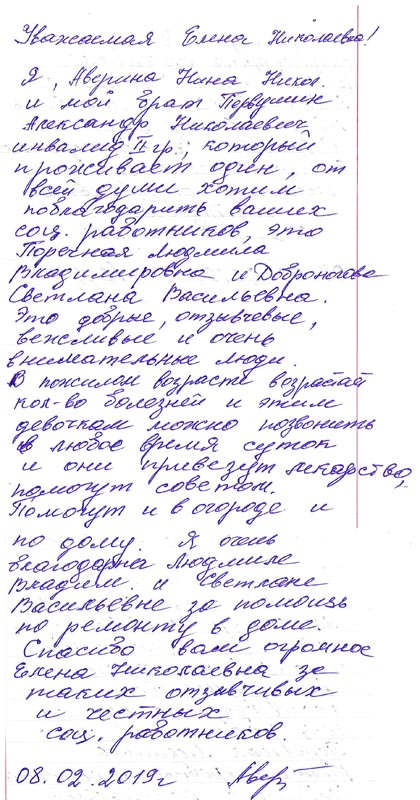 Уважаемая Елена Николаевна!
Я, Аверина Нина Никол.
и мой брат Первушин
Александр Николаевич
инвалид II гр, который
проживает один, от
всей души хотим
поблагодарить ваших
соц. работников, это
Поречная Людмила
Владимировна и Доброногова
Светлана Васильевна.
Это добрые, отзывчевые,
вежливые и очень
внимательные люди.
В пожилом возрасте возрастает
кол-во болезней и этим
девочкам можно позвонить
в любое время суток
и они привезут лекарство,
помогут советом.
Помогут и в огороде и
по дому. Я очень
благодарна Людмиле
Владим. и Светлане
Васильевне за помощь
по ремонту в доме.
Спасибо вам огромное
Елена Николаевна за
таких отзывчивых
и честных
соц. работников.
08.02.2019г Авер